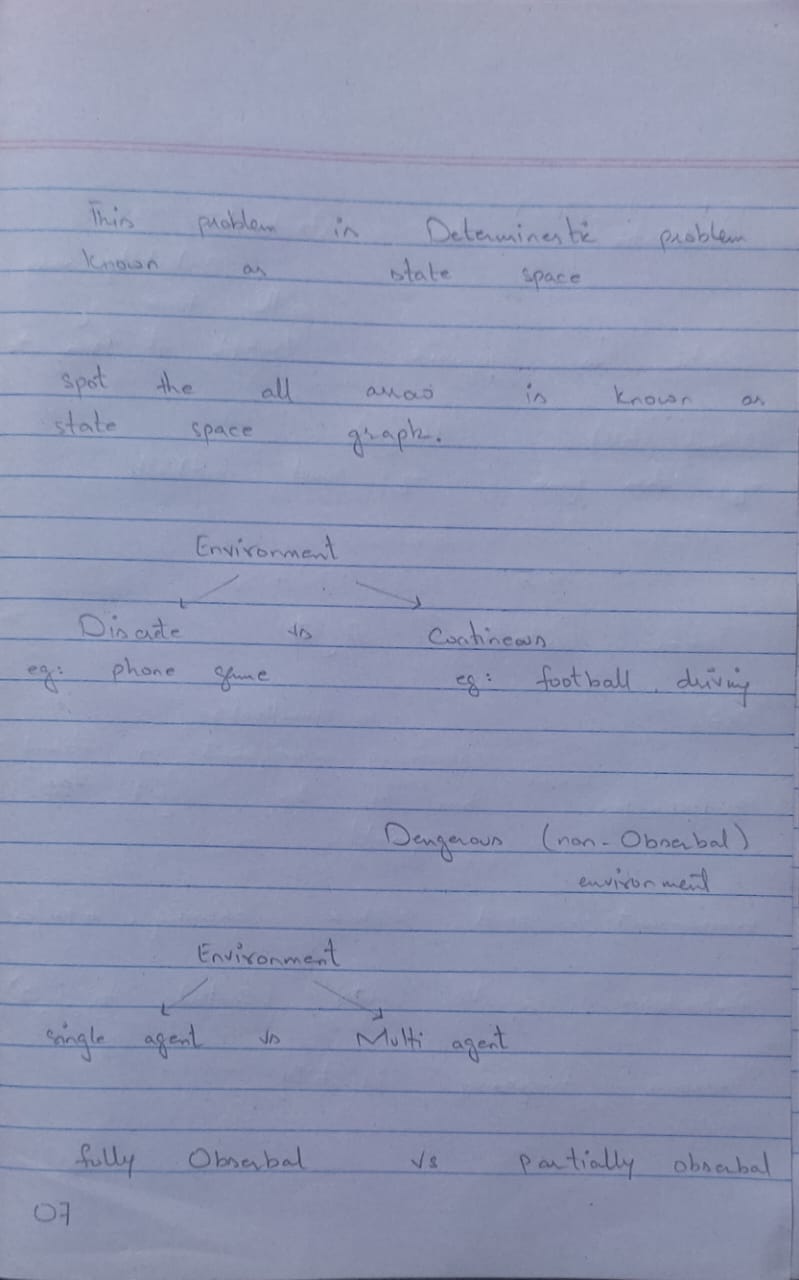 This problem is Determinestic problem
known as state space
spot the all arrow is known as
state space graph.
Environment
Discrete vs Contineous
eg: phone game eg: football, driving
Dengerous (non-Obserbal)
environment
Environment
single agent vs Multi agent
fully Obserbal vs partially obserbal
07